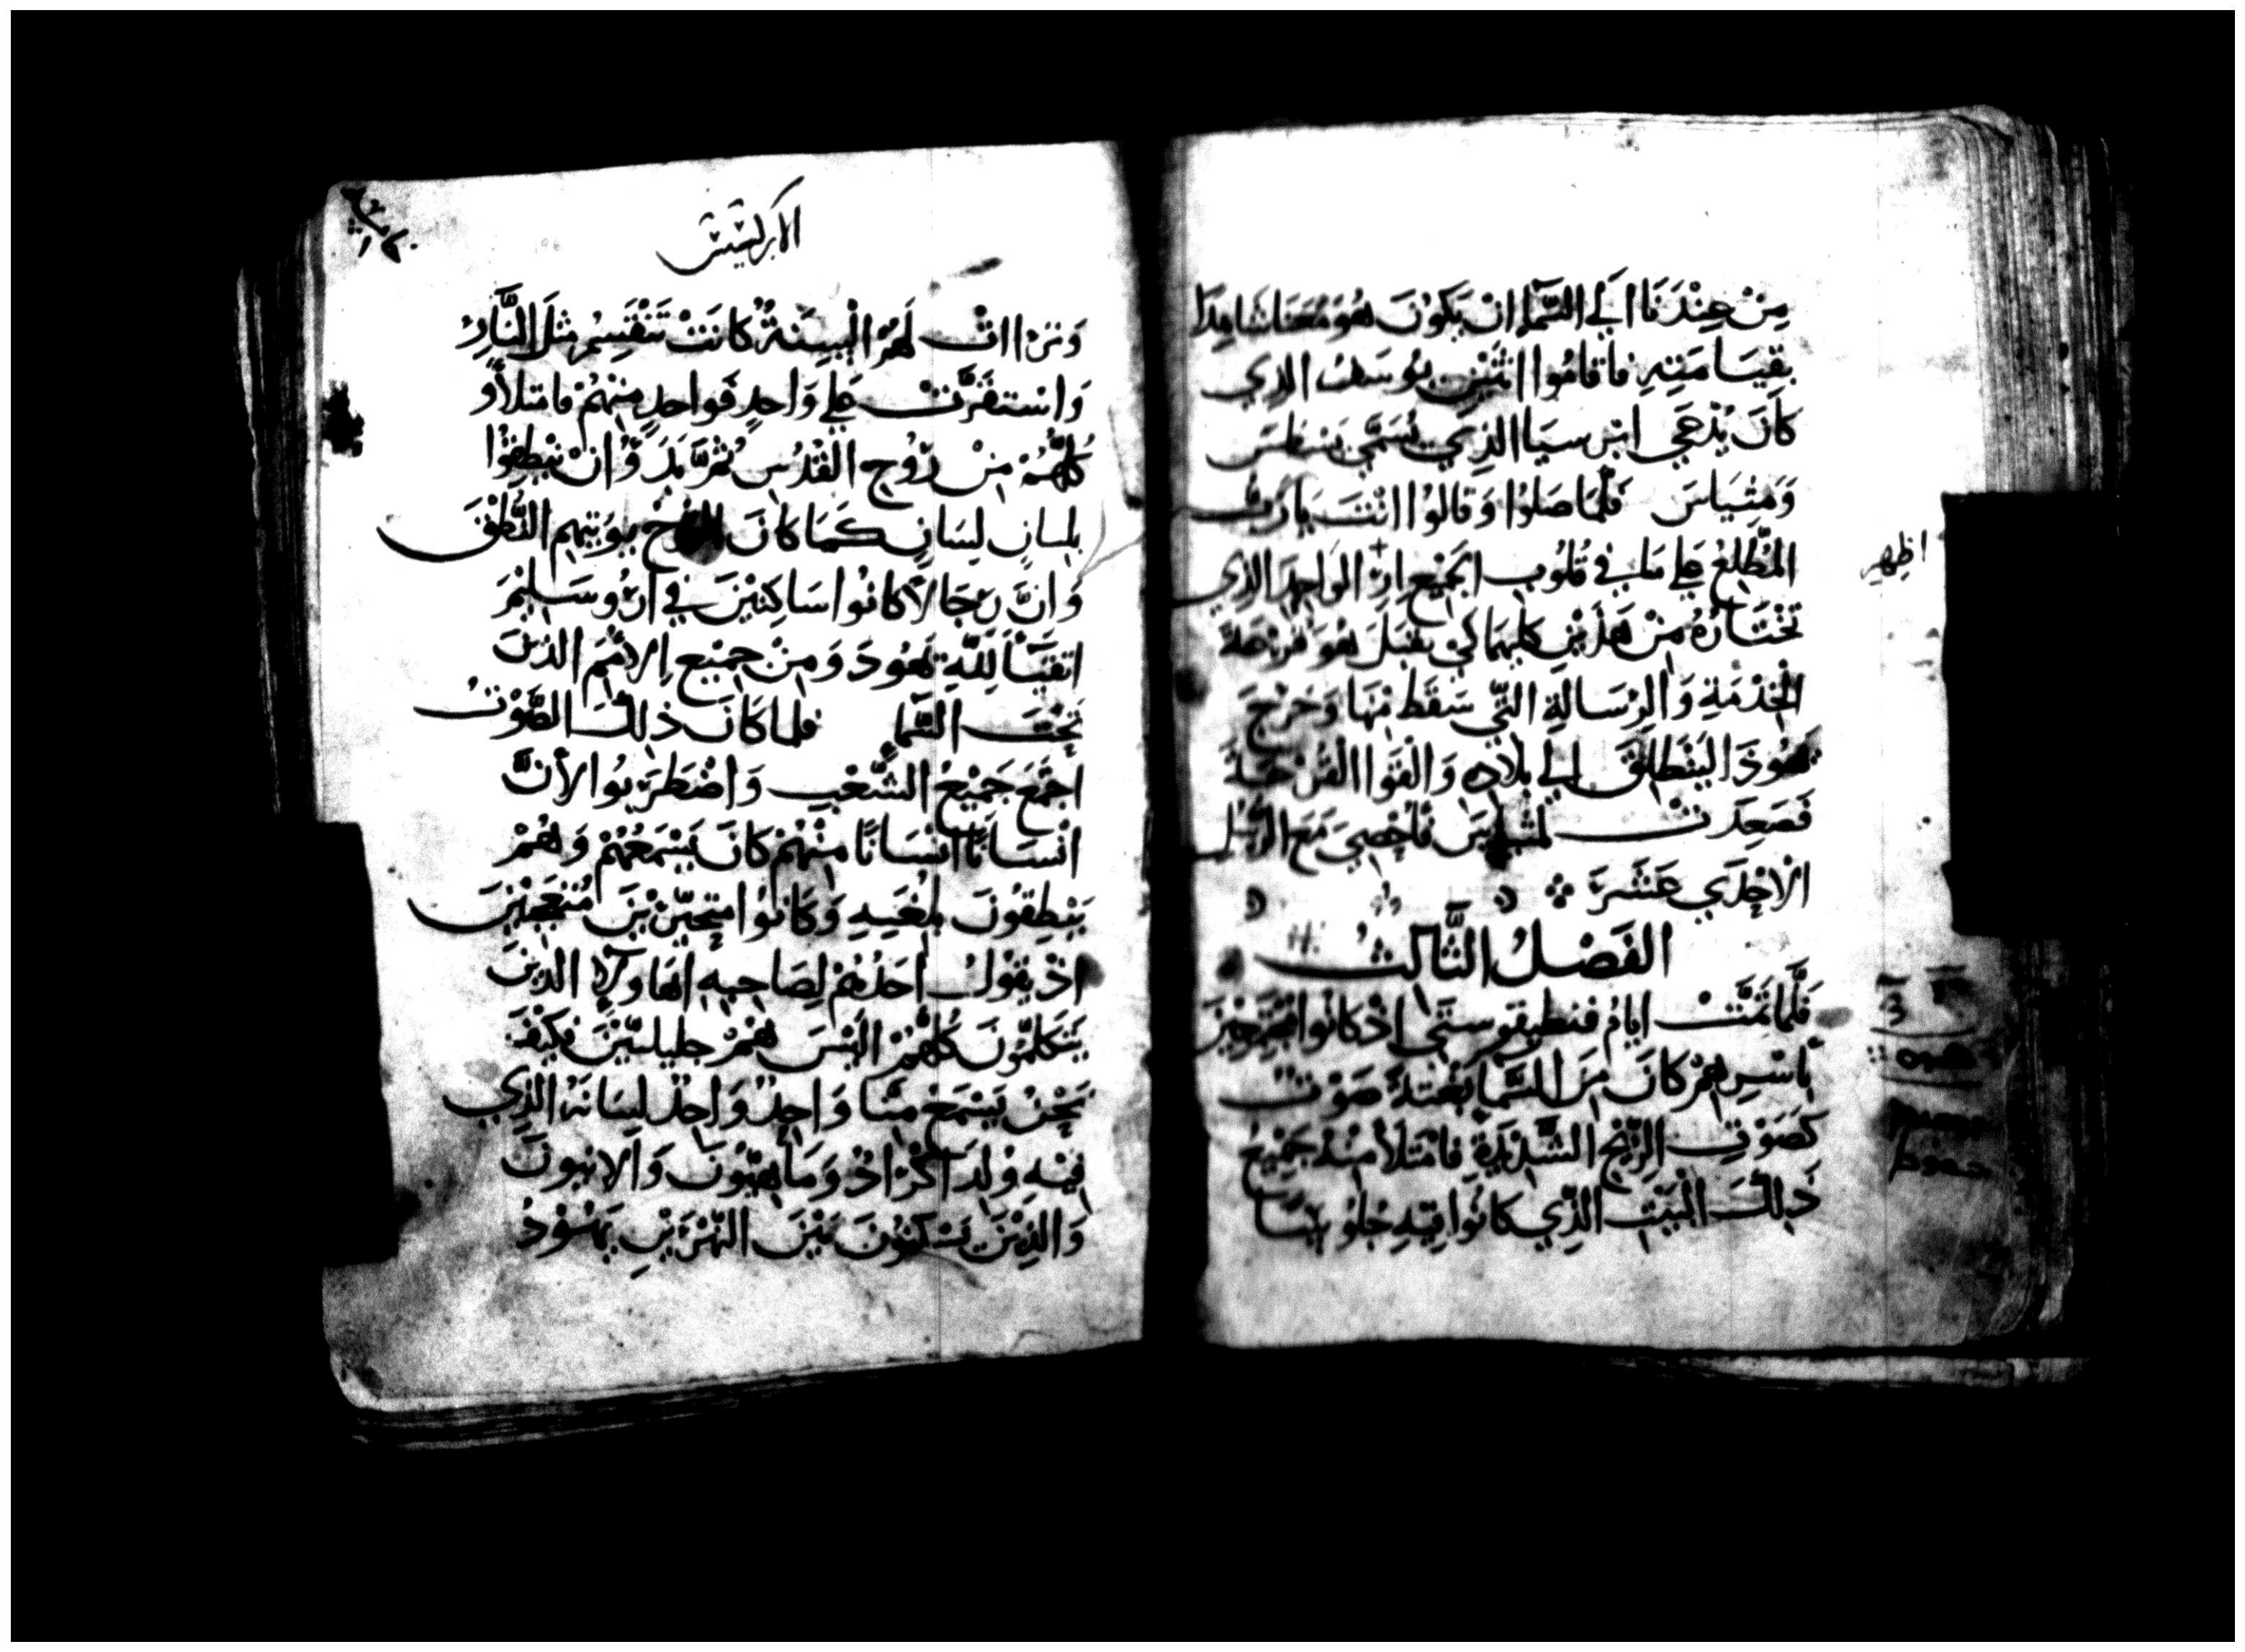 مِنْ عِنْدَنَا الي السَّمَا ان يَكونَ هُوَ مَعَنا شَاهِدًا
بِقِيَامَتِهِ فاقامُوا اثنَيْنِ يوسَفُ الذِي
كانَ يُدْعَي ابن سَبَا الذِي يُسَمَّي يَسْطسَ
وَمتِيَاسَ فَلَمَّا صَلوُا وَقالوُا انْتَ يارَبُ
المُطَّلِعُ عَلي مَا في قلُوبِ الجَمِيْع اظهِر الوَاحِدَ الذِي
تَخْتَارُهُ مِنْ هَذَيْنِ كليهمَا كَي يقبَلَ هُوَ قرْعَة
الخِدْمَةِ وَالرِسَالَةِ التِّي سَقَط مِنْهَا وَخَرَجَ
يَهُوذَا ليَنْطَلِقَ الي بلاَده وَالْقَوا القُرْعَةَ
فَصَعِدَتْ لمتياسَ فَاُحْصِيَ مَعَ الرُّسُل
الاحْدَي عَشَرَ
الفَصْلُ الثَّالِثُ
فَلَمَّا تَمَّتْ ايامُ فنطيقوسْتَي اذ كانُوا مُجتَمِعِيْنَ
باسْرِهِمْ كانَ مِنَ السَّمَا بَغْتَةً صَوْتٌ
كَصَوْتِ الرِّيْحِ الشَّدِيْدَةِ فامْتَلأ مِنْهُ جَمِيْعُ
ذَلِكَ الْبَيْتِ الذِّي كانُوا فِيْهِ جُلُوسًا
الابركسيس
وَتَرااتْ لَهُمْ الْسِنَةٌ كانَتْ تَنْقَسِمُ مِثلَ النَّارِ
وَاسْتَقَرَّتْ عَلي وَاحِدٍ فَوَاحدٍ مِنْهُمْ فامتلأوُ
كُلُّهُمْ مِنْ رُوْح القُدُسِ ثُمَّ بَدَوُّا انْ يَنْطِقُوْا
بلسانٍ لِسَانٍ كَمَا كانَ الرُّوْحُ يوُتِيهم النُّطْقَ
وَانَّ رجَالاً كانُوا سَاكِنِيْنَ في ارُوسَلِيْمَ
اتقيَآ لِلَّهِ يَهُودَ وَمِنْ جَمِيْعِ الاُمَمِ الذينَ
تَحْتَ السَّمَا فلما كانَ ذلِكَ الصَّوْتُ
اجْتَمَعَ جَمِيْعُ الشَّعْبِ وَاضْطَرَبُوا لأَنَّ
انْسَانًا انْسَانًا مِنْهُمْ كانَ يَسْمَعُهُمْ وَهُمْ
يَنْطِقُونَ بلُغَتِهِ وَكَانُوا مُتَحَيِّريْنَ مُتَعَجِبيْنَ
اذ يَقُولُ احَدُهُمْ لِصَاحِبِهِ اهَاوُلآ الذينَ
يَتَكَلمُّونَ كُلُّهُمْ الَيْسَ هُمْ جليليّيْنَ فكَيْفَ
نَحْنُ يَسْمَعُ مِنَّا وَاحِدٌ وَاحِدٌ لِسَانَهُ الذِي
فِيْهِ وُلِدَ اكْرَادٌ وَمَاهيُونَ وَالانيونَ
وَالذِيْنَ يَسْكنُونَ بَيْنَ النَهْرَيْنِ يَهُوْدُ